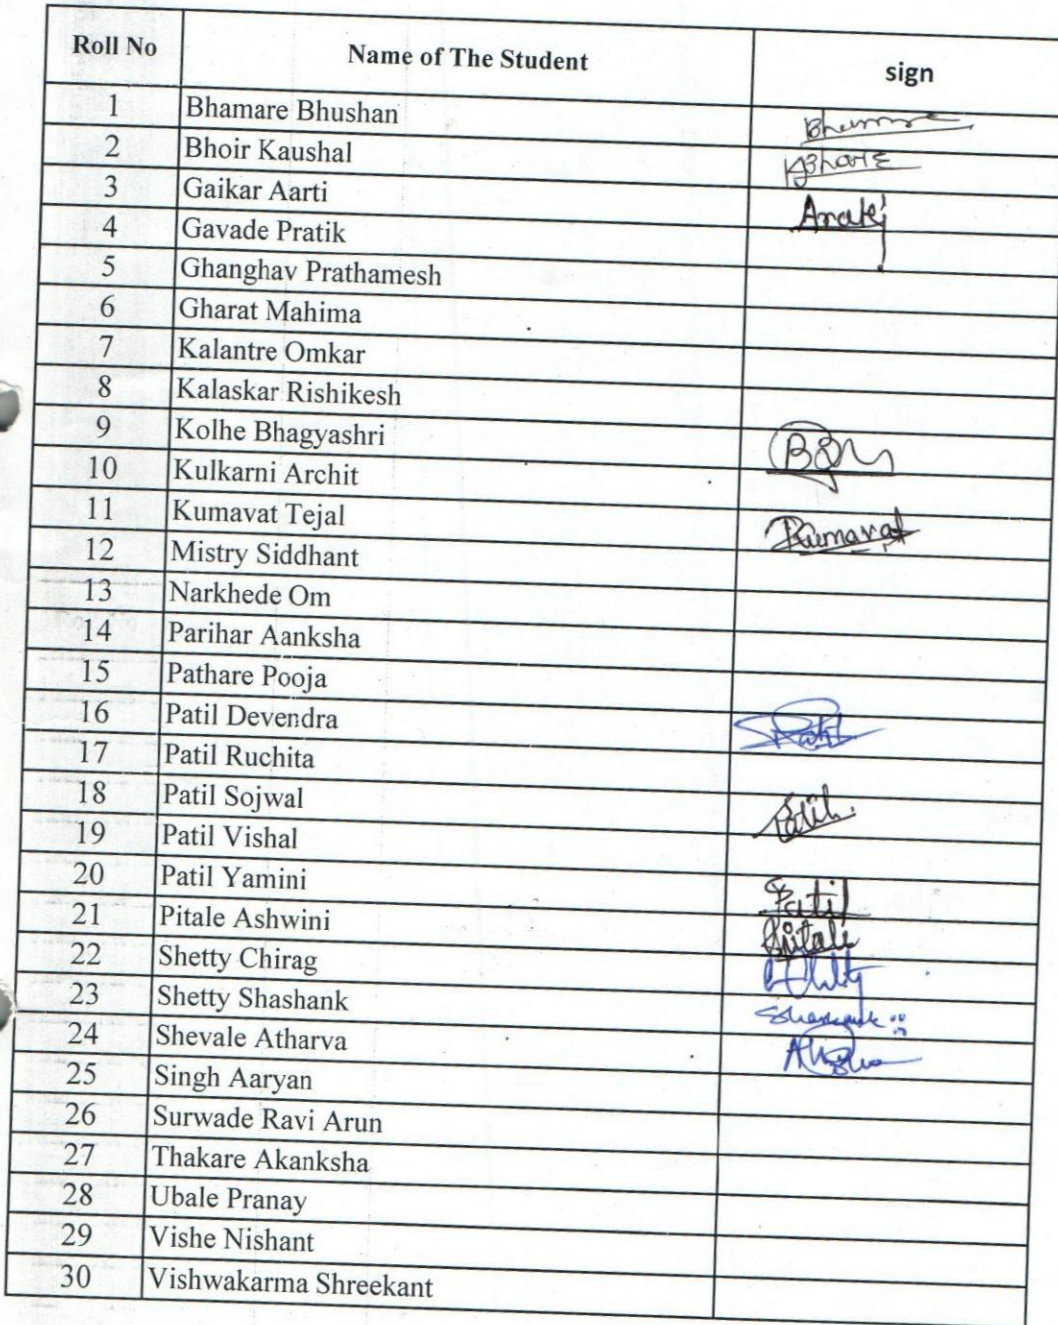 Roll No Name of The Student sign
1 Bhamare Bhushan
2 Bhoir Kaushal
3 Gaikar Aarti
4 Gavade Pratik
5 Ghanghav Prathamesh
6 Gharat Mahima
7 Kalantre Omkar
8 Kalaskar Rishikesh
9 Kolhe Bhagyashri
10 Kulkarni Archit
11 Kumavat Tejal Kumavat
12 Mistry Siddhant
13 Narkhede Om
14 Parihar Aanksha
15 Pathare Pooja
16 Patil Devendra
17 Patil Ruchita
18 Patil Sojwal Patil
19 Patil Vishal
20 Patil Yamini Patil
21 Pitale Ashwini Pitale
22 Shetty Chirag
23 Shetty Shashank Shashank
24 Shevale Atharva
25 Singh Aaryan
26 Surwade Ravi Arun
27 Thakare Akanksha
28 Ubale Pranay
29 Vishe Nishant
30 Vishwakarma Shreekant